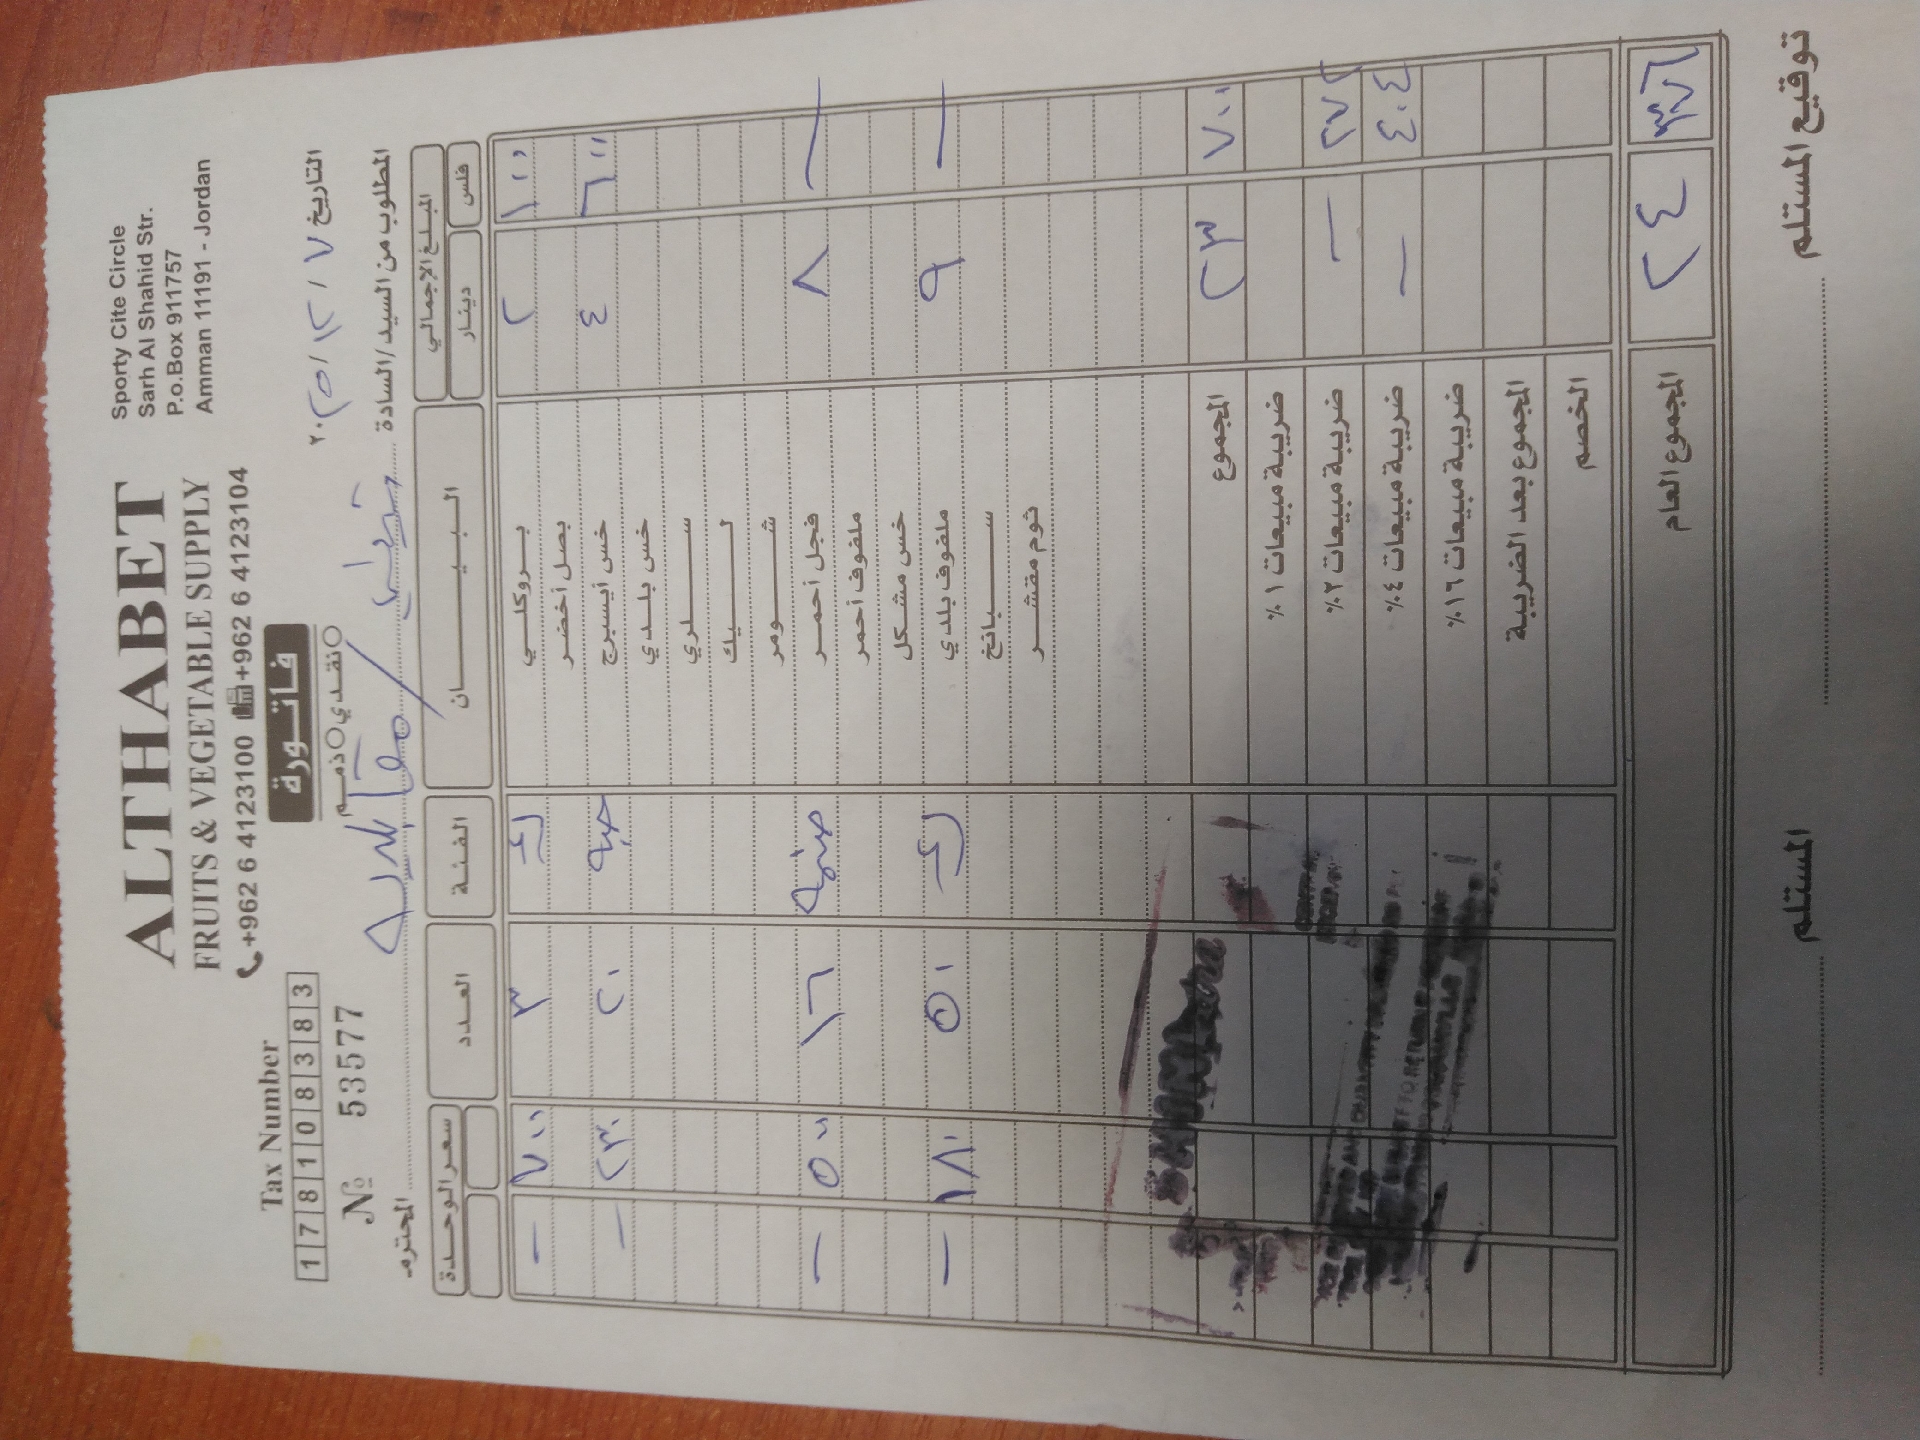 ALTHABET
FRUITS & VEGETABLE SUPPLY
+962 6 4123100 +962 6 4123104
Sporty Cite Circle
Sarh Al Shahid Str.
P.o.Box 911757
Amman 11191 - Jordan
Tax Number
1 7 8 1 0 8 3 8 3
فاتورة
نقدي ذمم
№ 53577
التاريخ ٧ / ١٢ / ٢٠٢٥
المطلوب من السيد/السادة المحترم
سعر الوحدة العدد الفئة البيان المبلغ الإجمالي
دينار فلس
- ٧٠٠ ٣ بروكلي ٢ ١٠٠
بصل أخضر
- ٢٣٠ ٢٠ حبه خس أيسبرج ٤ ٦٠٠
خس بلدي
سلري
ليك
شومر
- ٥٠٠ ١٦ فجل أحمر ٨ -
ملفوف أحمر
خس مشكل
- ١٨٠ ٥٠ ملفوف بلدي ٩ -
سبانخ
ثوم مقشر
المجموع ٢٣ ٧٠٠
ضريبة مبيعات ١%
ضريبة مبيعات ٢% - ٢٧٢
ضريبة مبيعات ٤% - ٤٠٤
ضريبة مبيعات ١٦%
المجموع بعد الضريبة
الخصم
المجموع العام ٢٤ ٣٧٦
المستلم توقيع المستلم